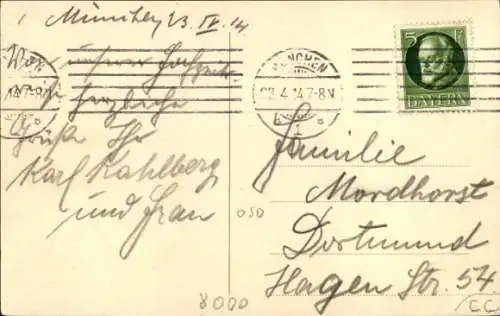 1 München 23 IV. 14
Von unserer Hochzeits-
reise herzliche
Grüße Ihr
Karl Kahlberg
und Frau
MÜNCHEN
4.14.7-8N
1
5
BAYERN
Familie
Mordhorst
Dortmund
Hagen Str. 54
050
8000
CC